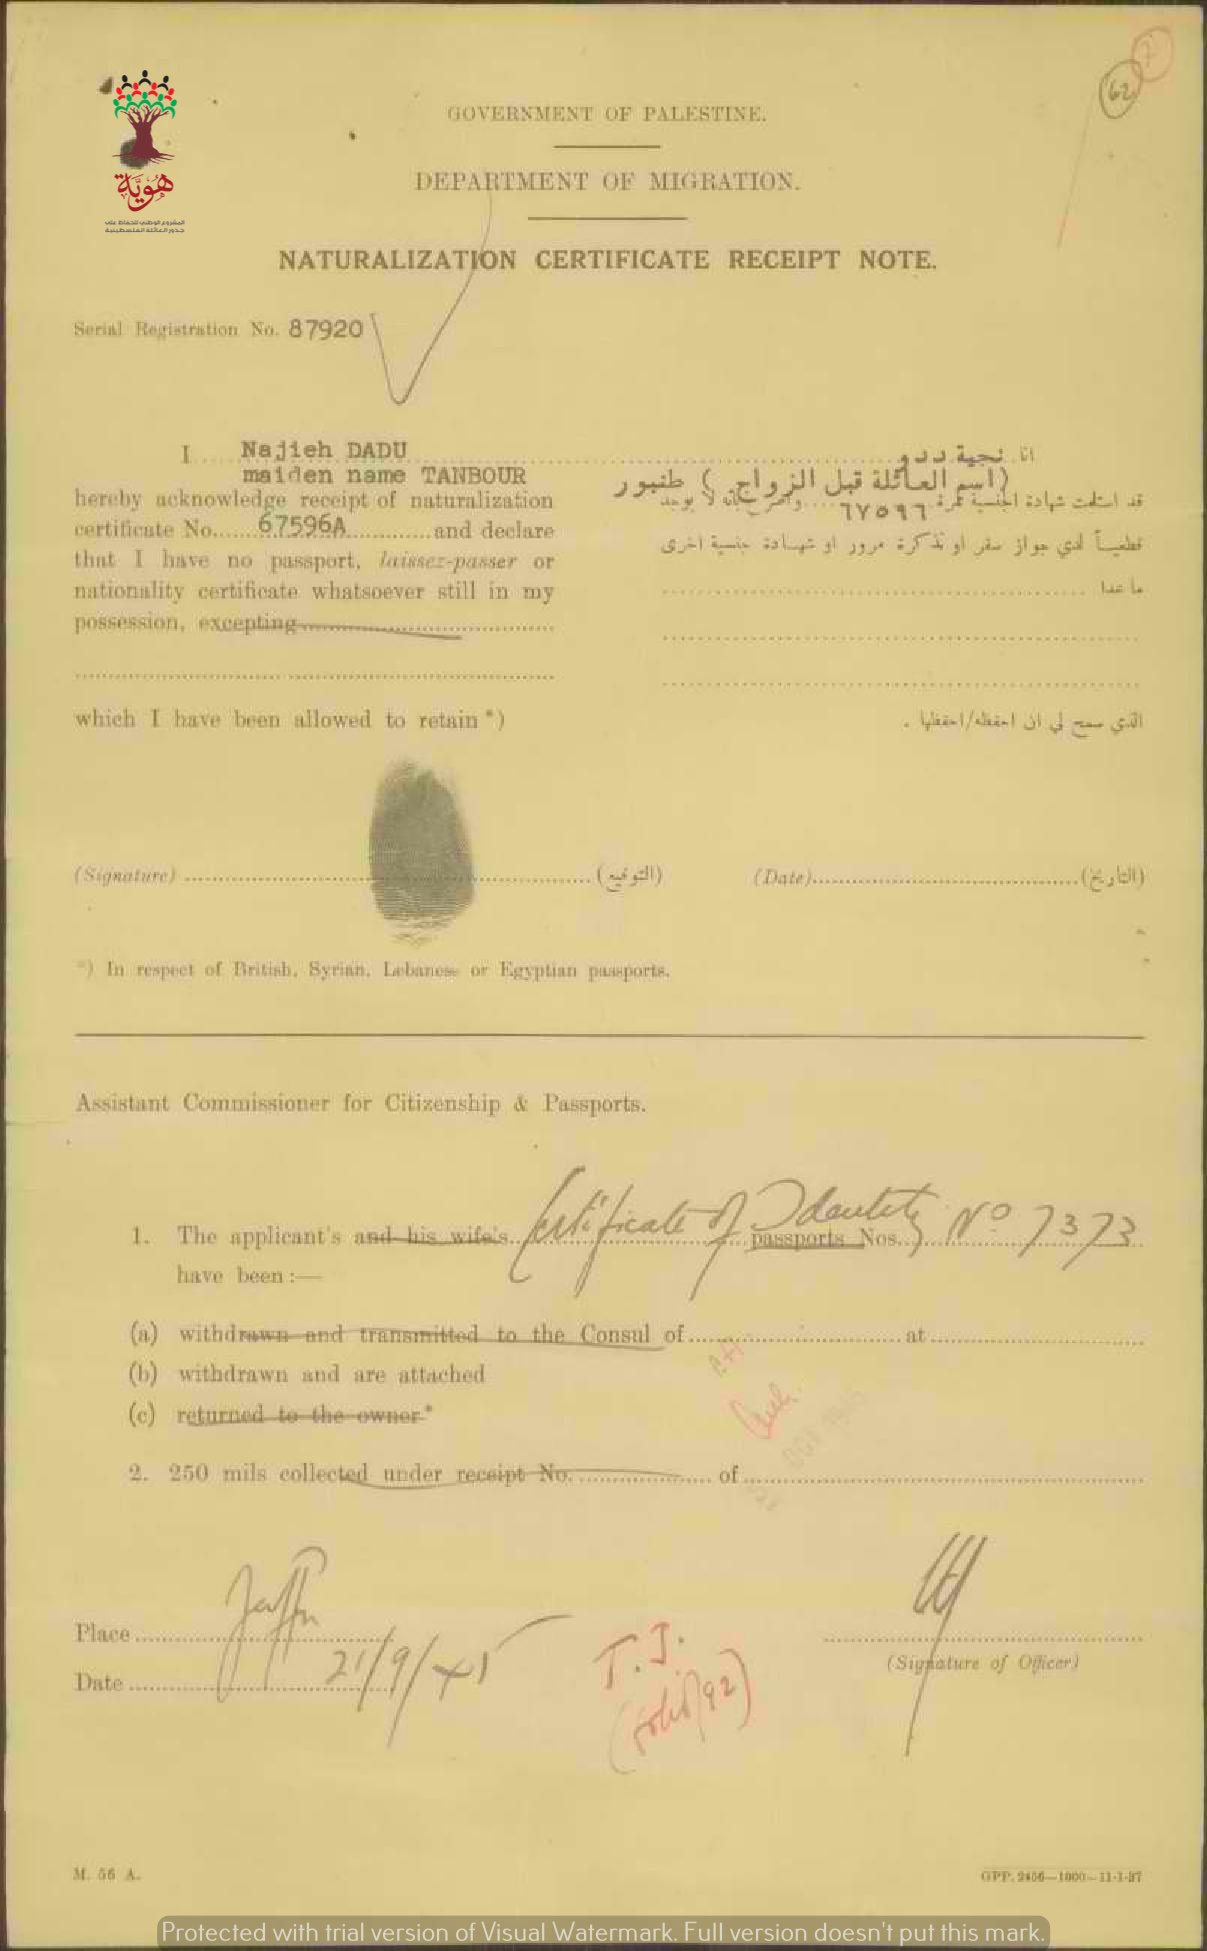 7
62
هوية
المشروع الوطني للحفاظ على
جذور العائلة الفلسطينية
GOVERNMENT OF PALESTINE.
DEPARTMENT OF MIGRATION.
NATURALIZATION CERTIFICATE RECEIPT NOTE.
Serial Registration No. 87920
I Najieh DADU
maiden name TANBOUR
hereby acknowledge receipt of naturalization
certificate No. 67596A and declare
that I have no passport, laissez-passer or
nationality certificate whatsoever still in my
possession, excepting
which I have been allowed to retain *)
انا نجية ددو
(اسم العائلة قبل الزواج) طنبور
قد استلمت شهادة الجنسية نمرة ٦٧٥٩٦ واصرح بانه لا يوجد
قطعياً لدي جواز سفر او تذكرة مرور او شهادة جنسية اخرى
ما عدا
الذي سمح لي ان احفظه/احفظها .
(Signature) (التوقيع) (Date) (التاريخ)
*) In respect of British, Syrian, Lebanese or Egyptian passports.
Assistant Commissioner for Citizenship & Passports.
1. The applicant's and his wife's Certificate of Identity passports Nos. No 7373
have been :—
(a) withdrawn and transmitted to the Consul of at
(b) withdrawn and are attached
(c) returned to the owner*
2. 250 mils collected under receipt No. of
Place Jaffa
Date 21/9/45
T.J.
(folio 92)
(Signature of Officer)
M. 56 A.
GPP. 2456—1000—11-1-37
Protected with trial version of Visual Watermark. Full version doesn't put this mark.